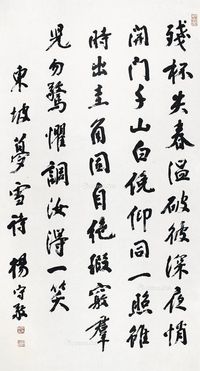 殘杯失春溫破被深夜悄
開門千山白俛仰同一照雖
時出圭角固自絕瑕竅羣
兒勿驚懼調汝得一笑
東坡夢雪詩 楊守敬